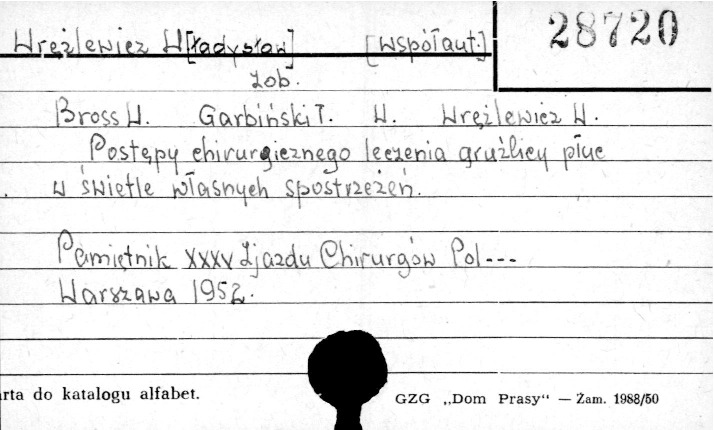 Wreżlewicz W[ładysław] [współaut.] 28720
zob.
Bross W. Garbiński T. W. Wreżlewicz W.
Postępy chirurgicznego leczenia gruźlicy płuc
w świetle własnych spostrzeżeń.
Pamiętnik XXXV Zjazdu Chirurgów Pol---
Warszawa 1952.
arta do katalogu alfabet. GZG „Dom Prasy“ — Zam. 1988/50